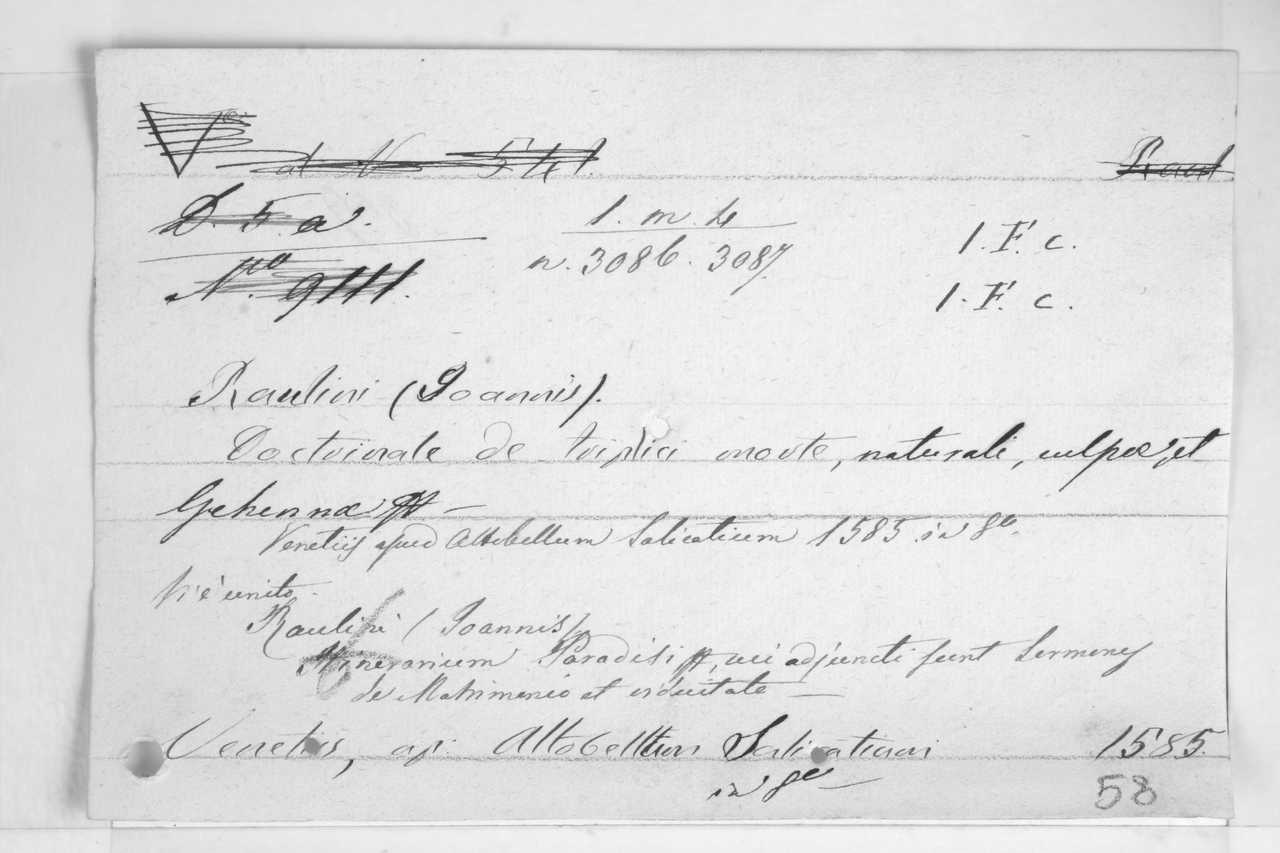 al N 541.
Raul
D. 5 a².
1. m. 4
1. F. c.
N.ro 9111.
n. 3086. 3087.
1. F. c.
Raulini (Joannis).
Doctrinale de triplici morte, naturali, culpæ, et
Gehennæ &c —
Venetiis apud Altobellum Salicatium 1585. in 8o.
Vi è unito.
Raulini (Joannis).
Itinerarium Paradisi &c, cui adjuncti sunt Sermones
de Matrimonio et viduitate —
Venetiis, ap: Altobellum Salicatium 1585.
in 8o —
58